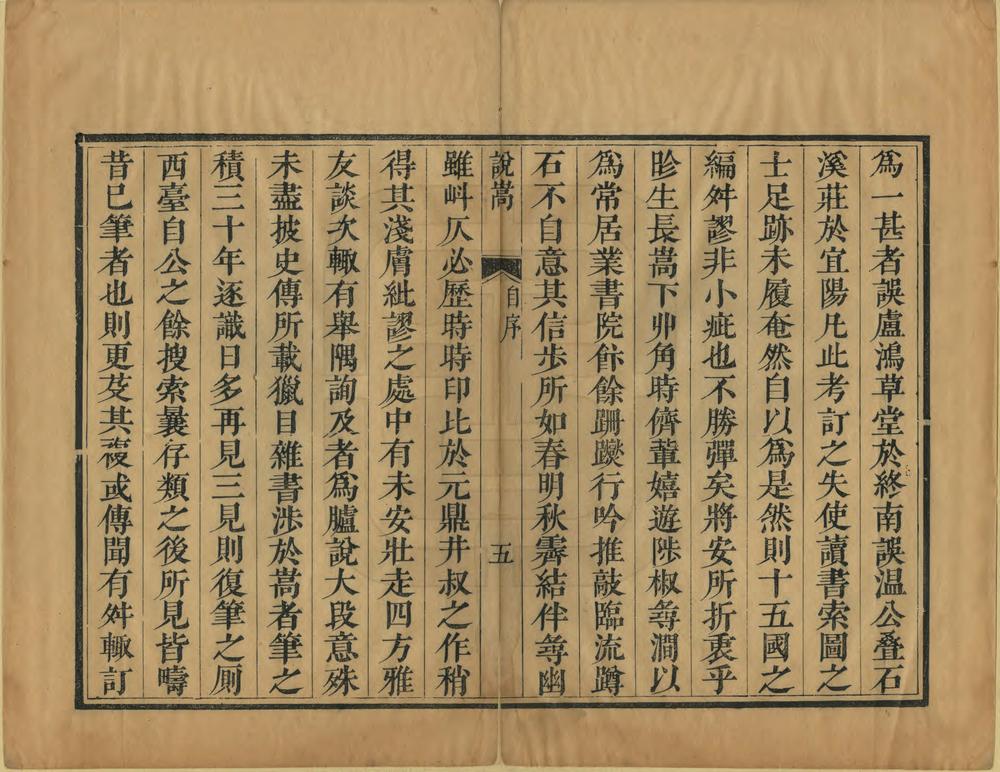 爲一甚者誤盧鴻草堂於終南誤温公叠石
溪莊於宜陽凡此考訂之失使讀書索圖之
士足跡未履奄然自以爲是然則十五國之
編舛謬非小疵也不勝彈矣將安所折衷乎
昣生長嵩下丱角時儕輩嬉遊陟椒尋澗以
爲常居業書院餘跚躞行吟推敲臨流蹲
石不自意其信步所如春明秋霽結伴尋幽
說嵩
自序
五
雖㟁仄必歷時時印比於元鼎井叔之作稍
得其淺膚紕謬之處中有未安壯走四方雅
友談次輙有舉隅詢及者爲臚說大段意殊
未盡披史傳所載獵目雜書涉於嵩者筆之
積三十年逐識日多再見三見則復筆之厠
西臺自公之餘搜索曩存類之後所見皆疇
昔已筆者也則更芟其複或傳聞有舛輙訂